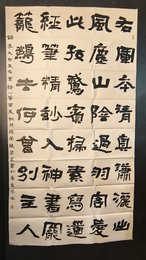 右軍本清真瀟灑出
風塵山陰過羽客要
此好鵝賓掃素寫道
經筆精妙入神書罷
籠鵝去何曾別主人